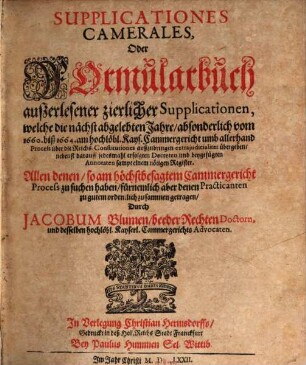 SUPPLICATIONES
CAMERALES,
Oder
FOrmularbuch
außerlesener zierlicher Supplicationen,
welche die nächst abgelebten Jahre / absonderlich vom
1660. biß 1664. am hochlöbl. Kays. Cammergericht umb allerhand
Process über die Reichs-Constitutiones extrajudicialiter übergeben /
nebenst darauff jedesmahl erfolgten Decreten und beygefügten
Autoritäten sampt einem nötigen Register.
Allen denen / so am höchstbesagtem Cammergericht
Process zu suchen haben / fürnemlich aber denen Practicanten
zu gutem ordentlich zusammen getragen /
Durch
JACOBUM Blumen / beeder Rechten Doctorn,
und desselben hochlöbl. Kayserl. Cammergerichts Advocaten.
In Verlegung Christian Hermsdorffs /
Gedruckt in deß Heil. Reichs Stadt Franckfurt
Bey Paulus Hummen Sel. Wittib.
Im Jahr Christi M. DC. LXXII.